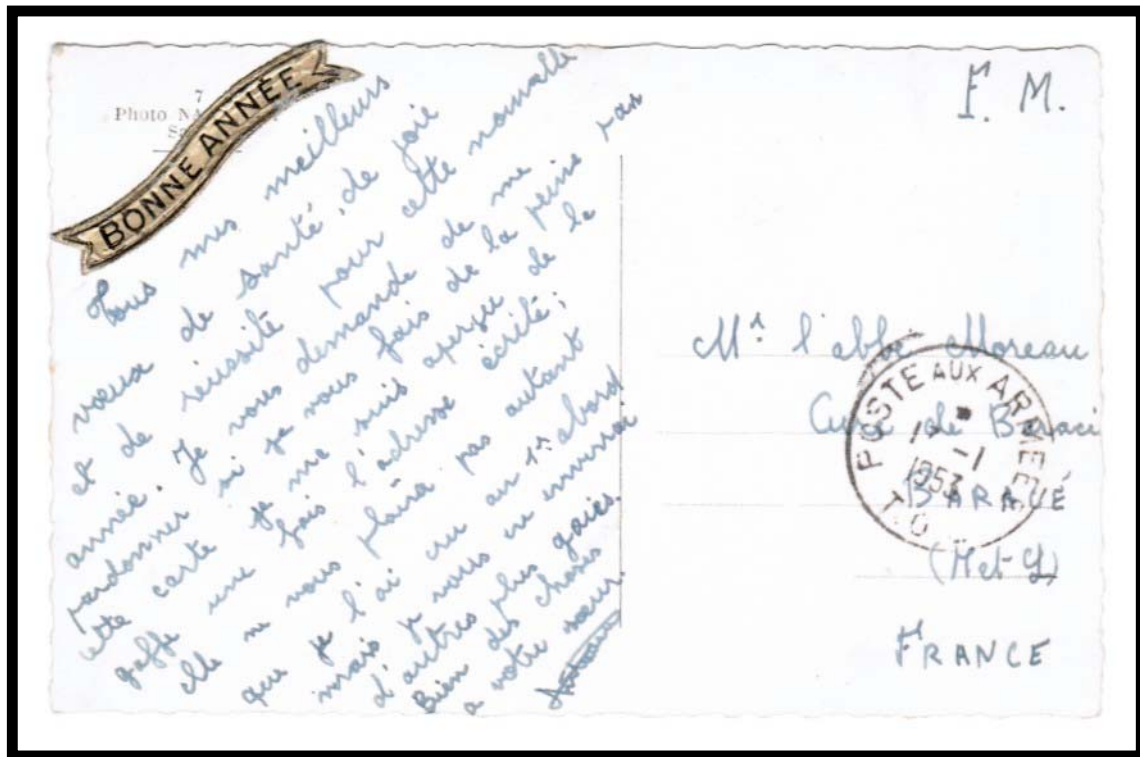 7
Photo NA
Sa
BONNE ANNÉE
Tous mes meilleurs
vœux de santé, de joie
et de réussite pour cette nouvelle
année. Je vous demande de me
pardonner si je vous fais de la peine par
cette carte je me suis aperçu de la
gaffe une fois l'adresse écrite;
elle ne vous plaira pas autant
que je l'ai cru au 1er abord
mais je vous en enverrai
d'autres plus gaies.
Bien des choses
a votre sœur.
F. M.
Mr l'abbé Moreau
Curé de
BARACÉ
(M et L)
FRANCE
POSTE AUX ARMEES
-1
1953
T.O.